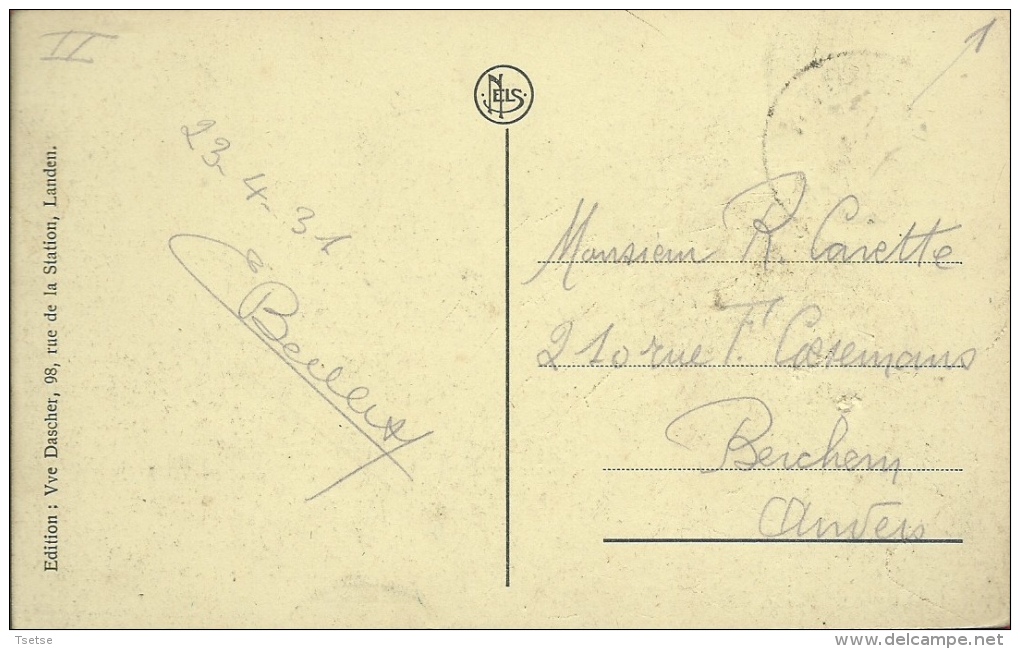 II
1
NELS
Edition : Vve Dascher, 98, rue de la Station, Landen.
23-4-31
Monsieur R. Cariette
210 rue F. Coosemans
Berchem
Anvers
Tsetse
www.delcampe.net